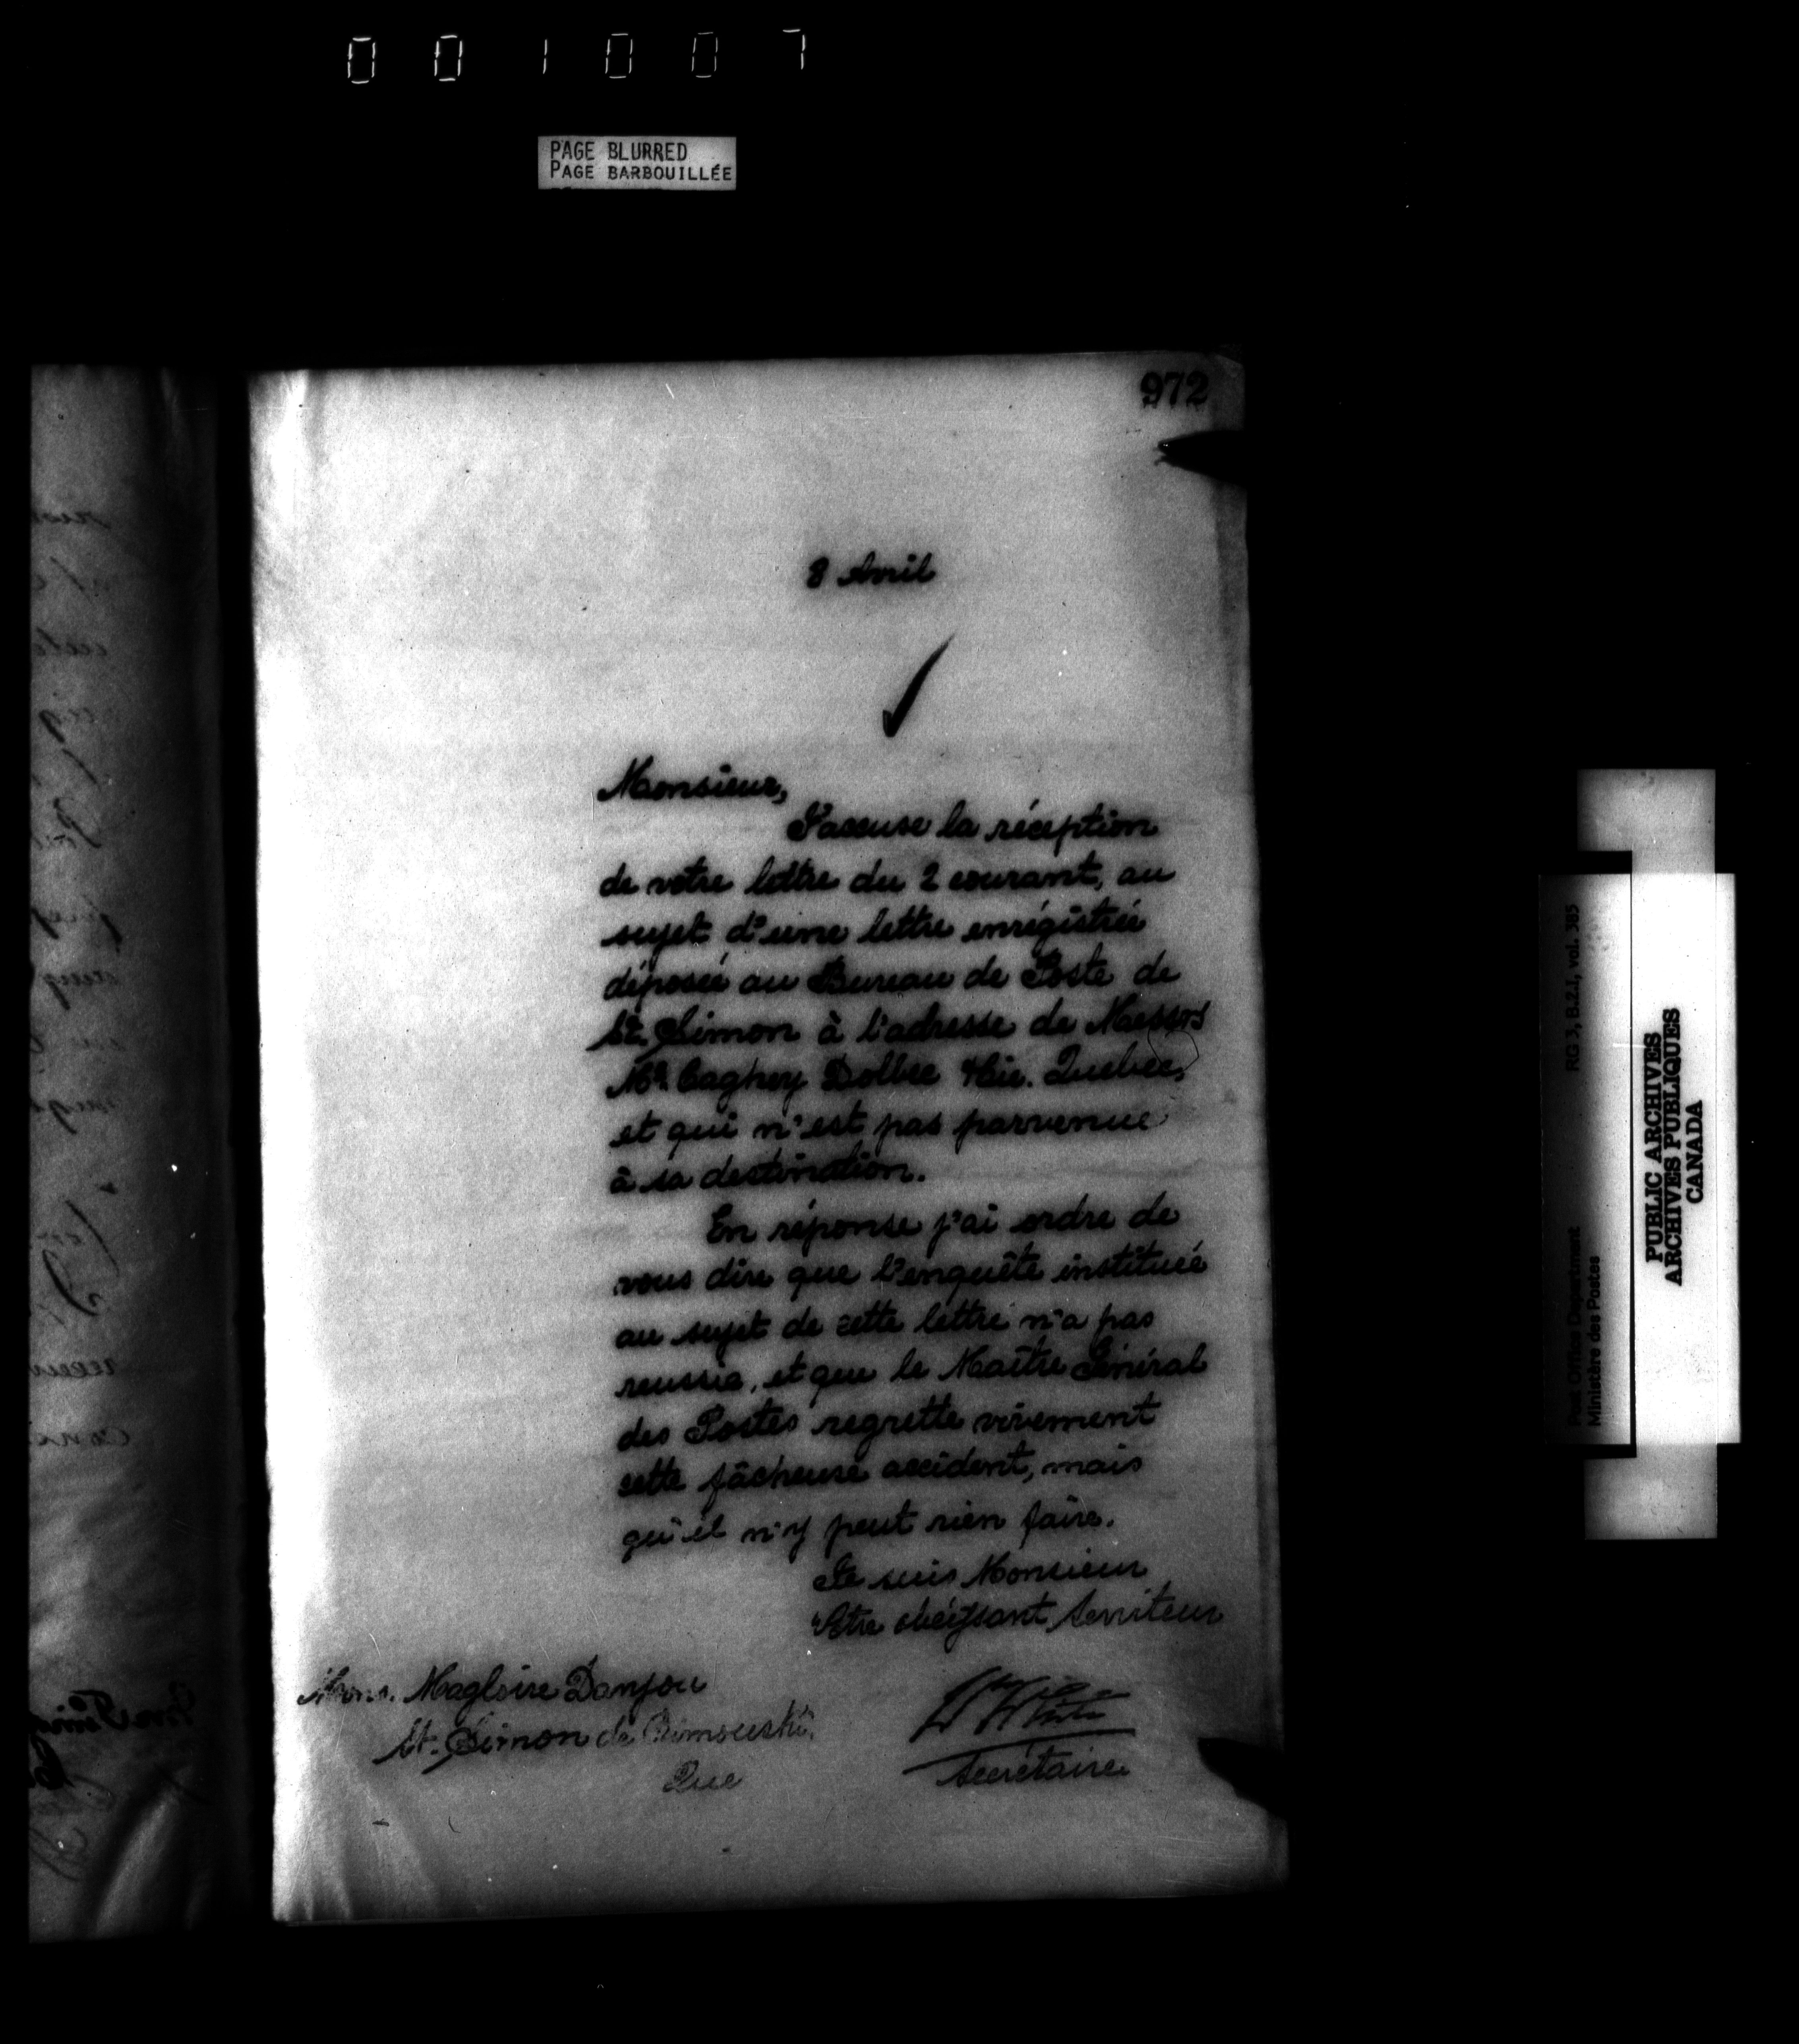 001007
PAGE BLURRED
PAGE BARBOUILLÉE
972
8 Avril
Monsieur,
J'accuse la réception
de votre lettre du 2 courant, au
sujet d'une lettre enrégistrée
déposée au Bureau de Poste de
St. Simon à l'adresse de Messrs
Mc. Caghey Dolbec &Cie. Québec,
et qui n'est pas parvenue
à sa destination.
En réponse j'ai ordre de
vous dire que l'enquête instituée
au sujet de cette lettre n'a pas
reussie, et que le Maître Général
des Postes regrette vivement
cette fâcheuse accident, mais
qu'il n'y peut rien faire.
Je suis Monsieur
Votre obéissant Serviteur
Mons. Magloire Danjou
St. Simon de Rimouski
Que
W White
Secrétaire
RG 3, B.2.1, vol. 385
Post Office Department
Ministère des Postes
PUBLIC ARCHIVES
ARCHIVES PUBLIQUES
CANADA